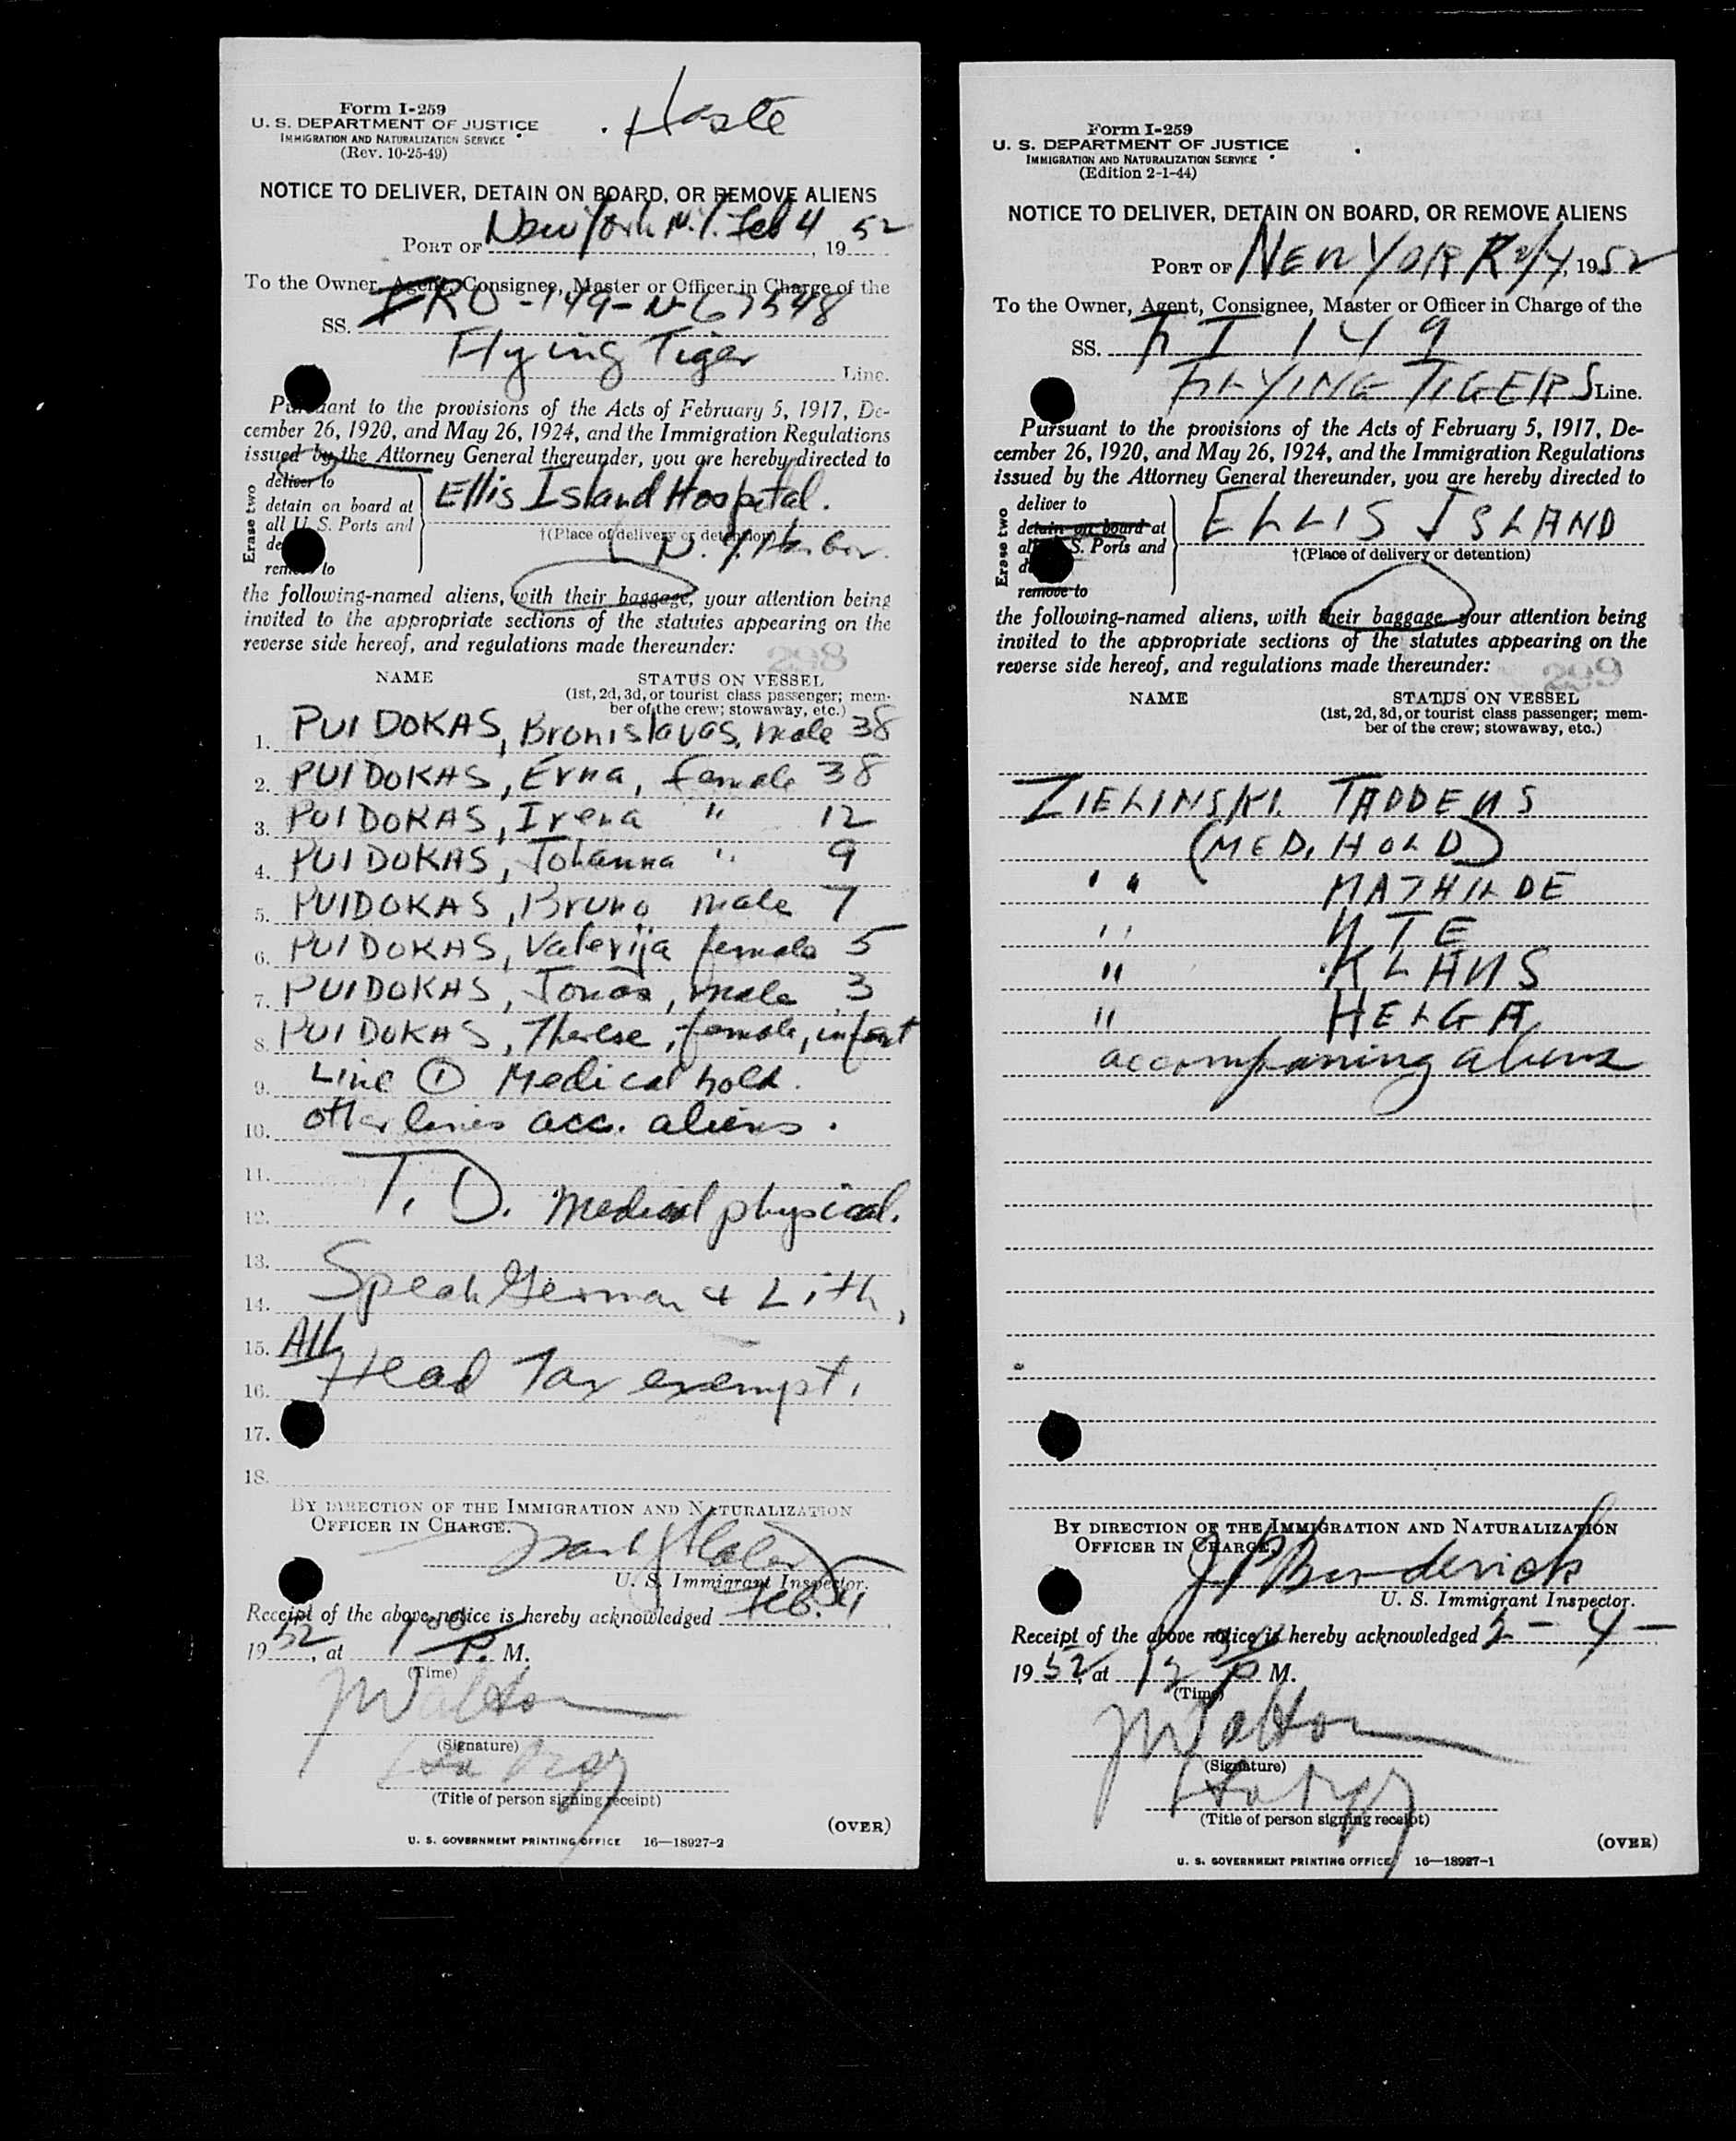 Form I-259
U. S. DEPARTMENT OF JUSTICE
IMMIGRATION AND NATURALIZATION SERVICE
(Rev. 10-25-49)
Haste
NOTICE TO DELIVER, DETAIN ON BOARD, OR REMOVE ALIENS
PORT OF New York N.Y. Feb 4, 1952
To the Owner, Agent, Consignee, Master or Officer in Charge of the
SS. -149-N-67548
Flying Tiger Line.
Pursuant to the provisions of the Acts of February 5, 1917, De-
cember 26, 1920, and May 26, 1924, and the Immigration Regulations
issued by the Attorney General thereunder, you are hereby directed to
Erase two
deliver to
detain on board at
all U. S. Ports and
de
remove to
Ellis Island Hospital.
†(Place of delivery or detention)
N. Y. Harbor.
the following-named aliens, with their baggage, your attention being
invited to the appropriate sections of the statutes appearing on the
reverse side hereof, and regulations made thereunder:
298
NAME STATUS ON VESSEL
(1st, 2d, 3d, or tourist class passenger; mem-
ber of the crew; stowaway, etc.)
1. PUIDOKAS, Bronislavas, male 38
2. PUIDOKAS, Erna, female 38
3. PUIDOKAS, Irena " 12
4. PUIDOKAS, Johanna " 9
5. PUIDOKAS, Bruno male 7
6. PUIDOKAS, Valerija female 5
7. PUIDOKAS, Jonas, male 3
8. PUIDOKAS, Therese, female, infant
9. Line ① Medical hold.
10. other lines acc. aliens.
11.
12. T. D. Medical physical.
13.
14. Speak German & Lith,
15. All
16. Head Tax exempt.
17.
18.
BY DIRECTION OF THE IMMIGRATION AND NATURALIZATION
OFFICER IN CHARGE.
U. S. Immigrant Inspector.
Receipt of the above notice is hereby acknowledged Feb. 4,
1952, at 1 00 P. M.
(Time)
J Walton
(Signature)
(Title of person signing receipt)
(OVER)
U. S. GOVERNMENT PRINTING OFFICE 16—18927-2
Form I-259
U. S. DEPARTMENT OF JUSTICE
IMMIGRATION AND NATURALIZATION SERVICE
(Edition 2-1-44)
NOTICE TO DELIVER, DETAIN ON BOARD, OR REMOVE ALIENS
PORT OF NEW YORK 2/4, 1952
To the Owner, Agent, Consignee, Master or Officer in Charge of the
SS. FT 149
FLYING TIGERS Line.
Pursuant to the provisions of the Acts of February 5, 1917, De-
cember 26, 1920, and May 26, 1924, and the Immigration Regulations
issued by the Attorney General thereunder, you are hereby directed to
Erase two
deliver to
detain on board at
all U. S. Ports and
d
remove to
ELLIS ISLAND
†(Place of delivery or detention)
the following-named aliens, with their baggage, your attention being
invited to the appropriate sections of the statutes appearing on the
reverse side hereof, and regulations made thereunder:
299
NAME STATUS ON VESSEL
(1st, 2d, 3d, or tourist class passenger; mem-
ber of the crew; stowaway, etc.)
ZIELINSKI. TADDEUS
(MED. HOLD)
" MATHILDE
" UTE
" KLAUS
" HELGA
accompaning aliens
BY DIRECTION OF THE IMMIGRATION AND NATURALIZATION
OFFICER IN CHARGE.
U. S. Immigrant Inspector.
Receipt of the above notice is hereby acknowledged 2 - 4 -
1952, at 12 30 P M.
(Time)
J Walton
(Signature)
(Title of person signing receipt)
(OVER)
U. S. GOVERNMENT PRINTING OFFICE 16—18927-1